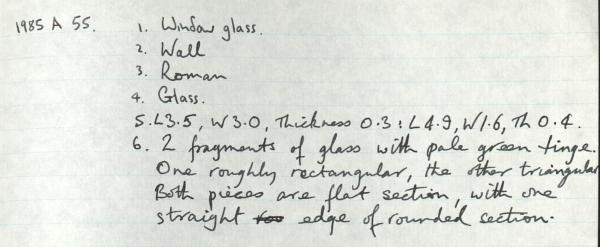 1985 A 55. 1. Window glass.
2. Wall
3. Roman
4. Glass.
5. L3.5, W 3.0, Thickness 0.3 : L 4.9, W 1.6, Th 0.4.
6. 2 fragments of glass with pale green tinge.
One roughly rectangular, the other triangular
Both pieces are flat section, with one
straight edge of rounded section.